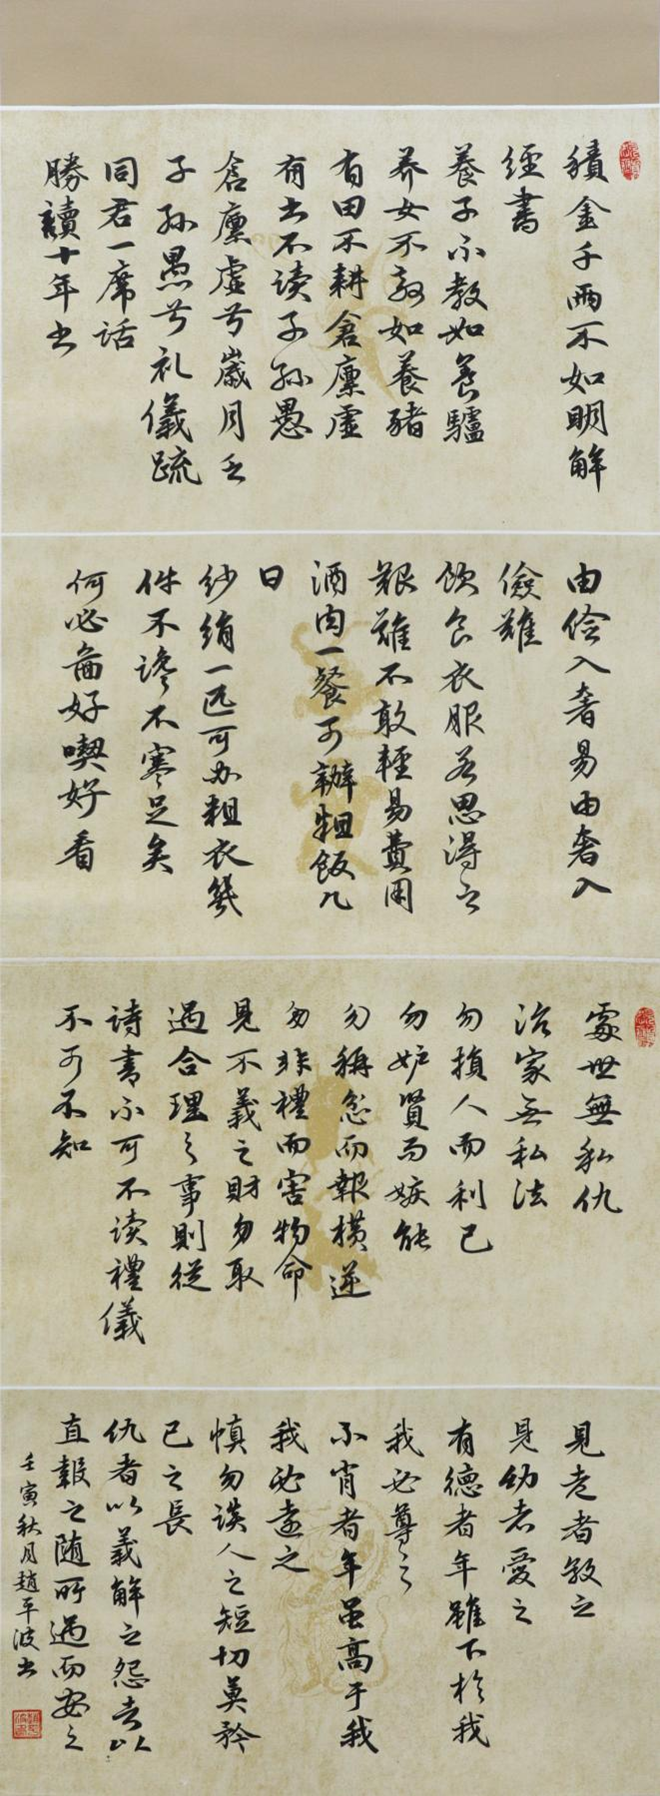 積金千兩不如明解
經書
養子不教如養驢
养女不教如養豬
有田不耕倉廪虛
有书不读子孙愚
倉廪虛兮歲月乏
子孙愚兮礼儀疏
同君一席话
勝讀十年书
由俭入奢易由奢入
儉難
饮食衣服若思得之
艱難不敢輕易費用
酒肉一餐可辦粗飯几
日
纱绢一匹可办粗衣幾
件不谗不寒足矣
何必图好喫好看
處世無私仇
治家無私法
勿損人而利己
勿妒賢而嫉能
勿稱忿而報橫逆
勿非禮而害物命
見不義之財勿取
遇合理之事則從
诗書不可不读禮儀
不可不知
見老者敬之
見幼者愛之
有德者年雖下於我
我必尊之
不肖者年虽高于我
我必遠之
慎勿谈人之短切莫矜
己之長
仇者以義解之怨者以
直報之随所遇而安之
壬寅秋月趙平波书